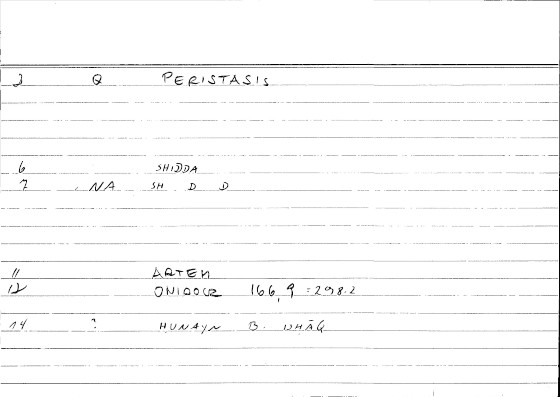 3 Q PERISTASIS
6 SHIDDA
7 NA SH D D
11 ARTEM
12 ONIROCR 166,9 = 298.2
14 ? HUNAYN B. ISHĀQ